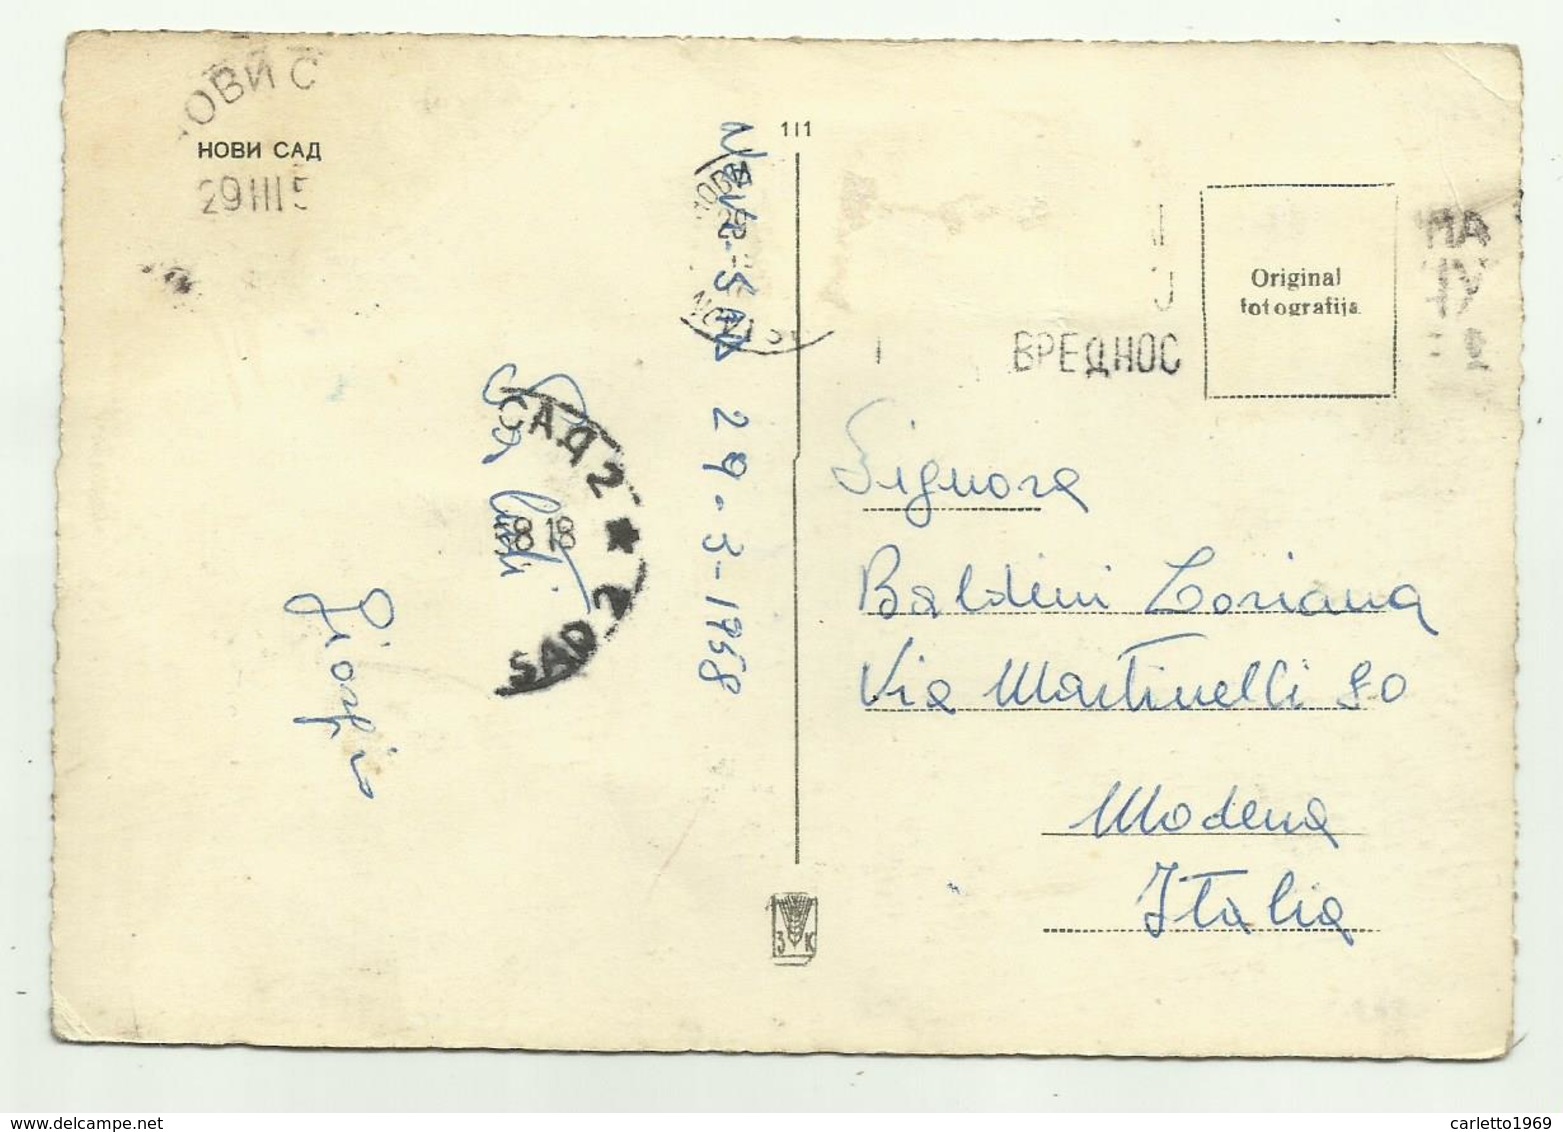 ОВИ С
НОВИ САД
29 III 5
САД 2
58 18
SAD 2
Giorgio
Novi-Sad 29-3-1958
НОВИ
29
NOVI S
111
ВРЕДНОС
НА
Original
fotografija
Signora
Baldini Loriana
Via Martinelli 80
Modena
Italia
З К
carletto1969